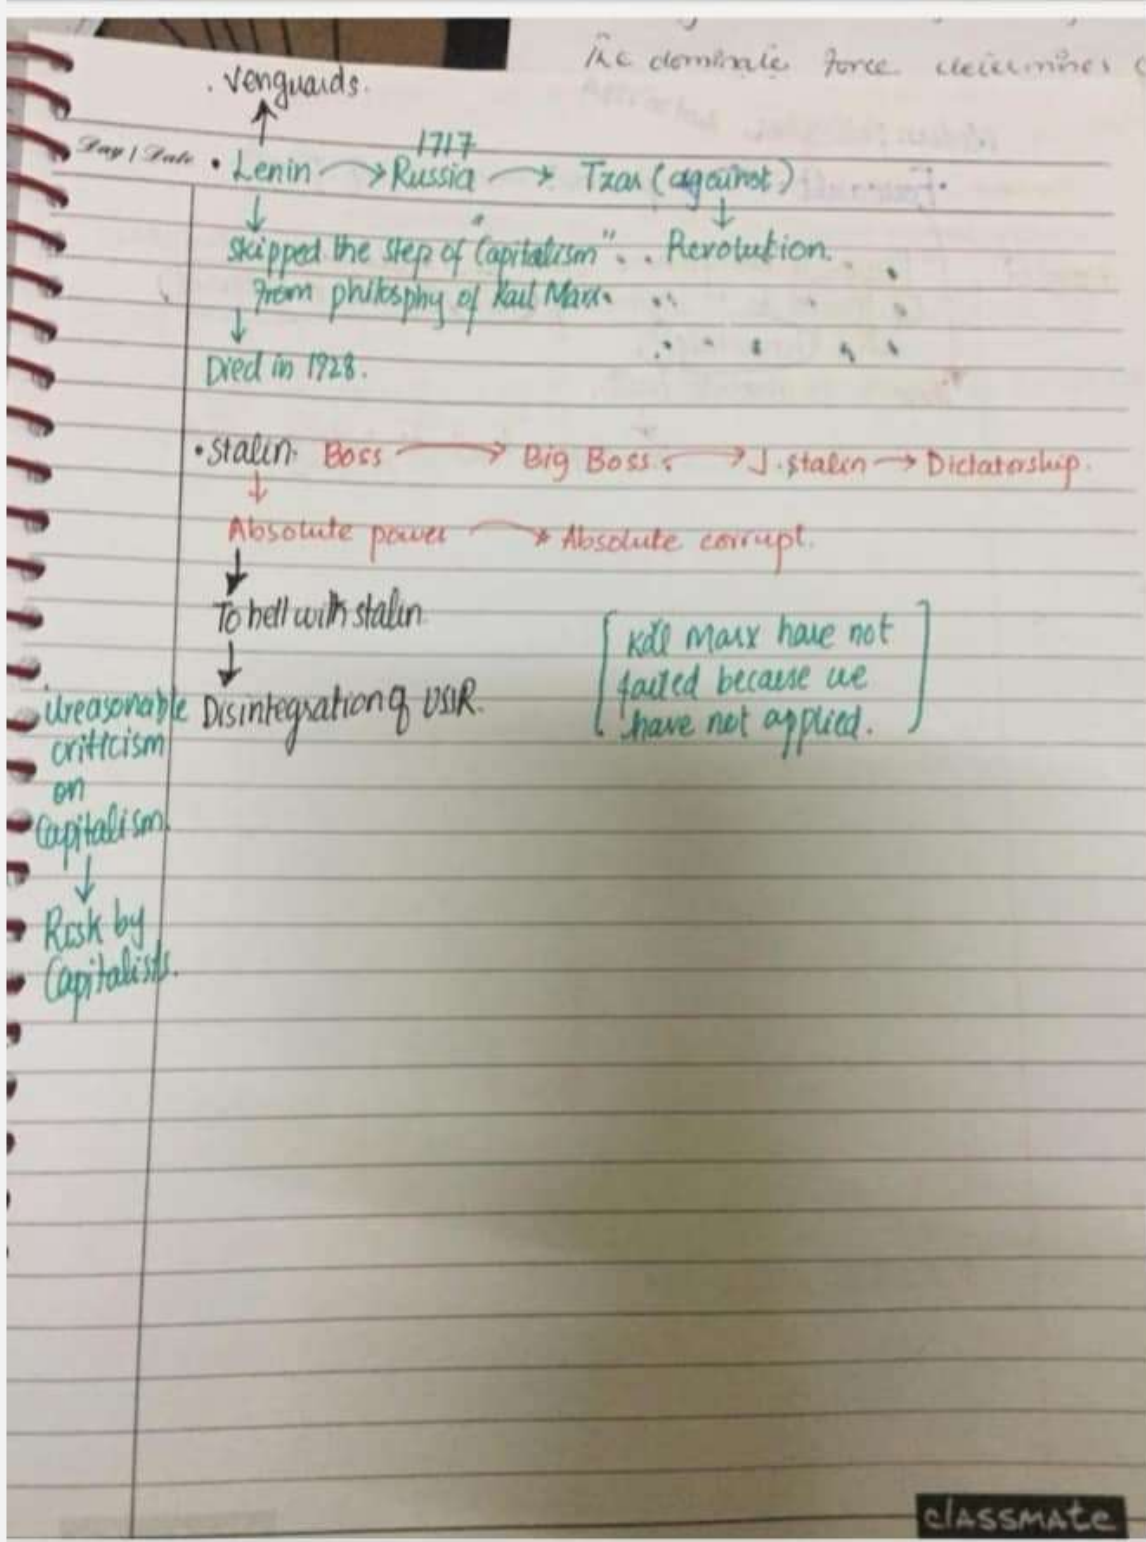 The dominate force determines
. Venguards.
1717
Day / Date
• Lenin → Russia → Tzar (against)
↓ ↓
Skipped the step of "Capitalism" . . Revolution.
from philosphy of Karl Marx.
↓
Died in 1928.
• Stalin. Boss → Big Boss. → J. Stalin → Dictatorship.
↓
Absolute power → Absolute corrupt.
↓
To hell with Stalin.
↓
Disintegration of USSR.
[ Karl Marx have not
failed because we
have not applied. ]
Ureasonable
criticism
on
Capitalism
↓
Risk by
Capitalists.
classmate